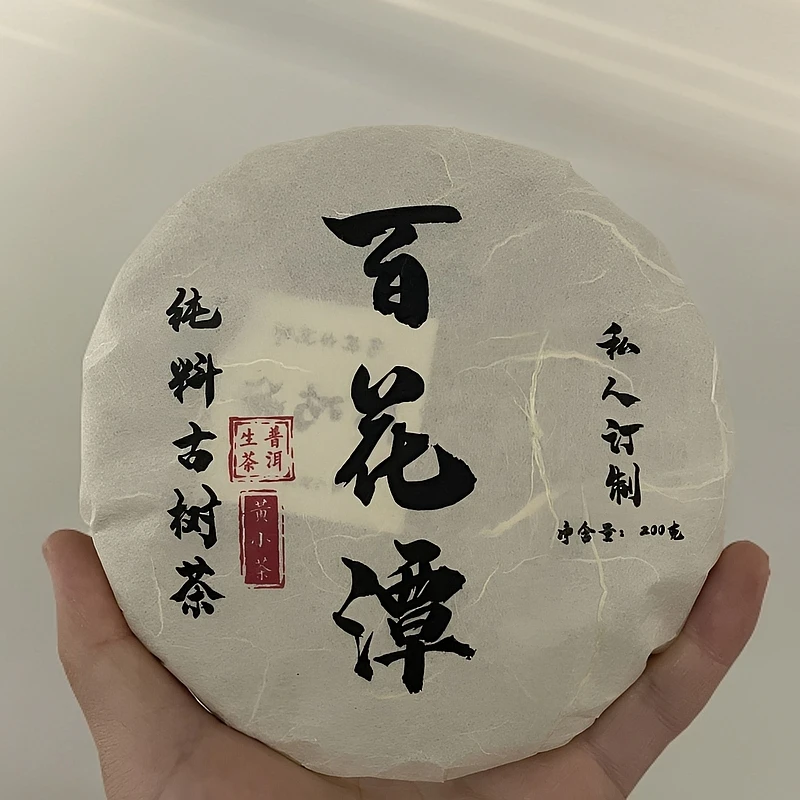 百花潭
私人订制
净含量：200克
纯料古树茶
普洱
生茶
黄小茶